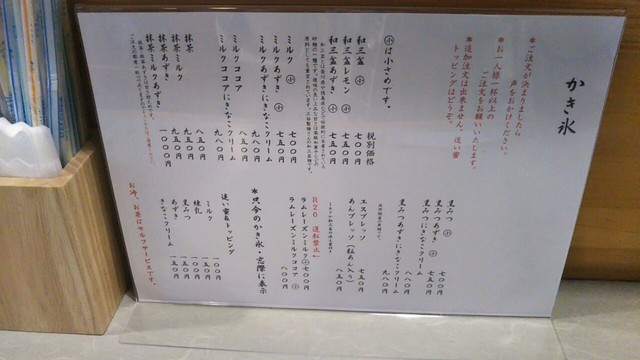 かき氷
*ご注文が決まりましたら
声をおかけください。
*お一人様一杯以上の
ご注文をお願いいたします。
*追加注文は出来ません。追い蜜
トッピングはどうぞ。
㋛は小さめです。
税別価格
和三盆 ㋛ 七〇〇円
和三盆レモン ㋛ 七五〇円
和三盆あずき ㋛ 七五〇円
ミルク ㋛ 七〇〇円
ミルクあずき ㋛ 七五〇円
ミルクあずきにきなこクリーム 九八〇円
ミルクココア 八五〇円
ミルクココアにきなこクリーム 九八〇円
抹茶 八五〇円
抹茶ミルク 九五〇円
抹茶あずき 九五〇円
抹茶ミルクあずき 一〇〇〇円
黒みつ 七〇〇円
黒みつあずき 七五〇円
黒みつにきなこクリーム 八八〇円
黒みつあずきにきなこクリーム 九八〇円
エスプレッソ 七五〇円
あんプレッソ(粒あん入り) 八五〇円
R20 運転禁止
ラムレーズンミルク 七〇〇円
ラムレーズンミルクココア 八〇〇円
*只今のかき氷・窓際に表示
追い蜜&トッピング
ミルク 一〇〇円
練乳 一〇〇円
黒みつ 一五〇円
あずき 一五〇円
きなこクリーム 一五〇円
お冷、お茶はセルフサービスです。